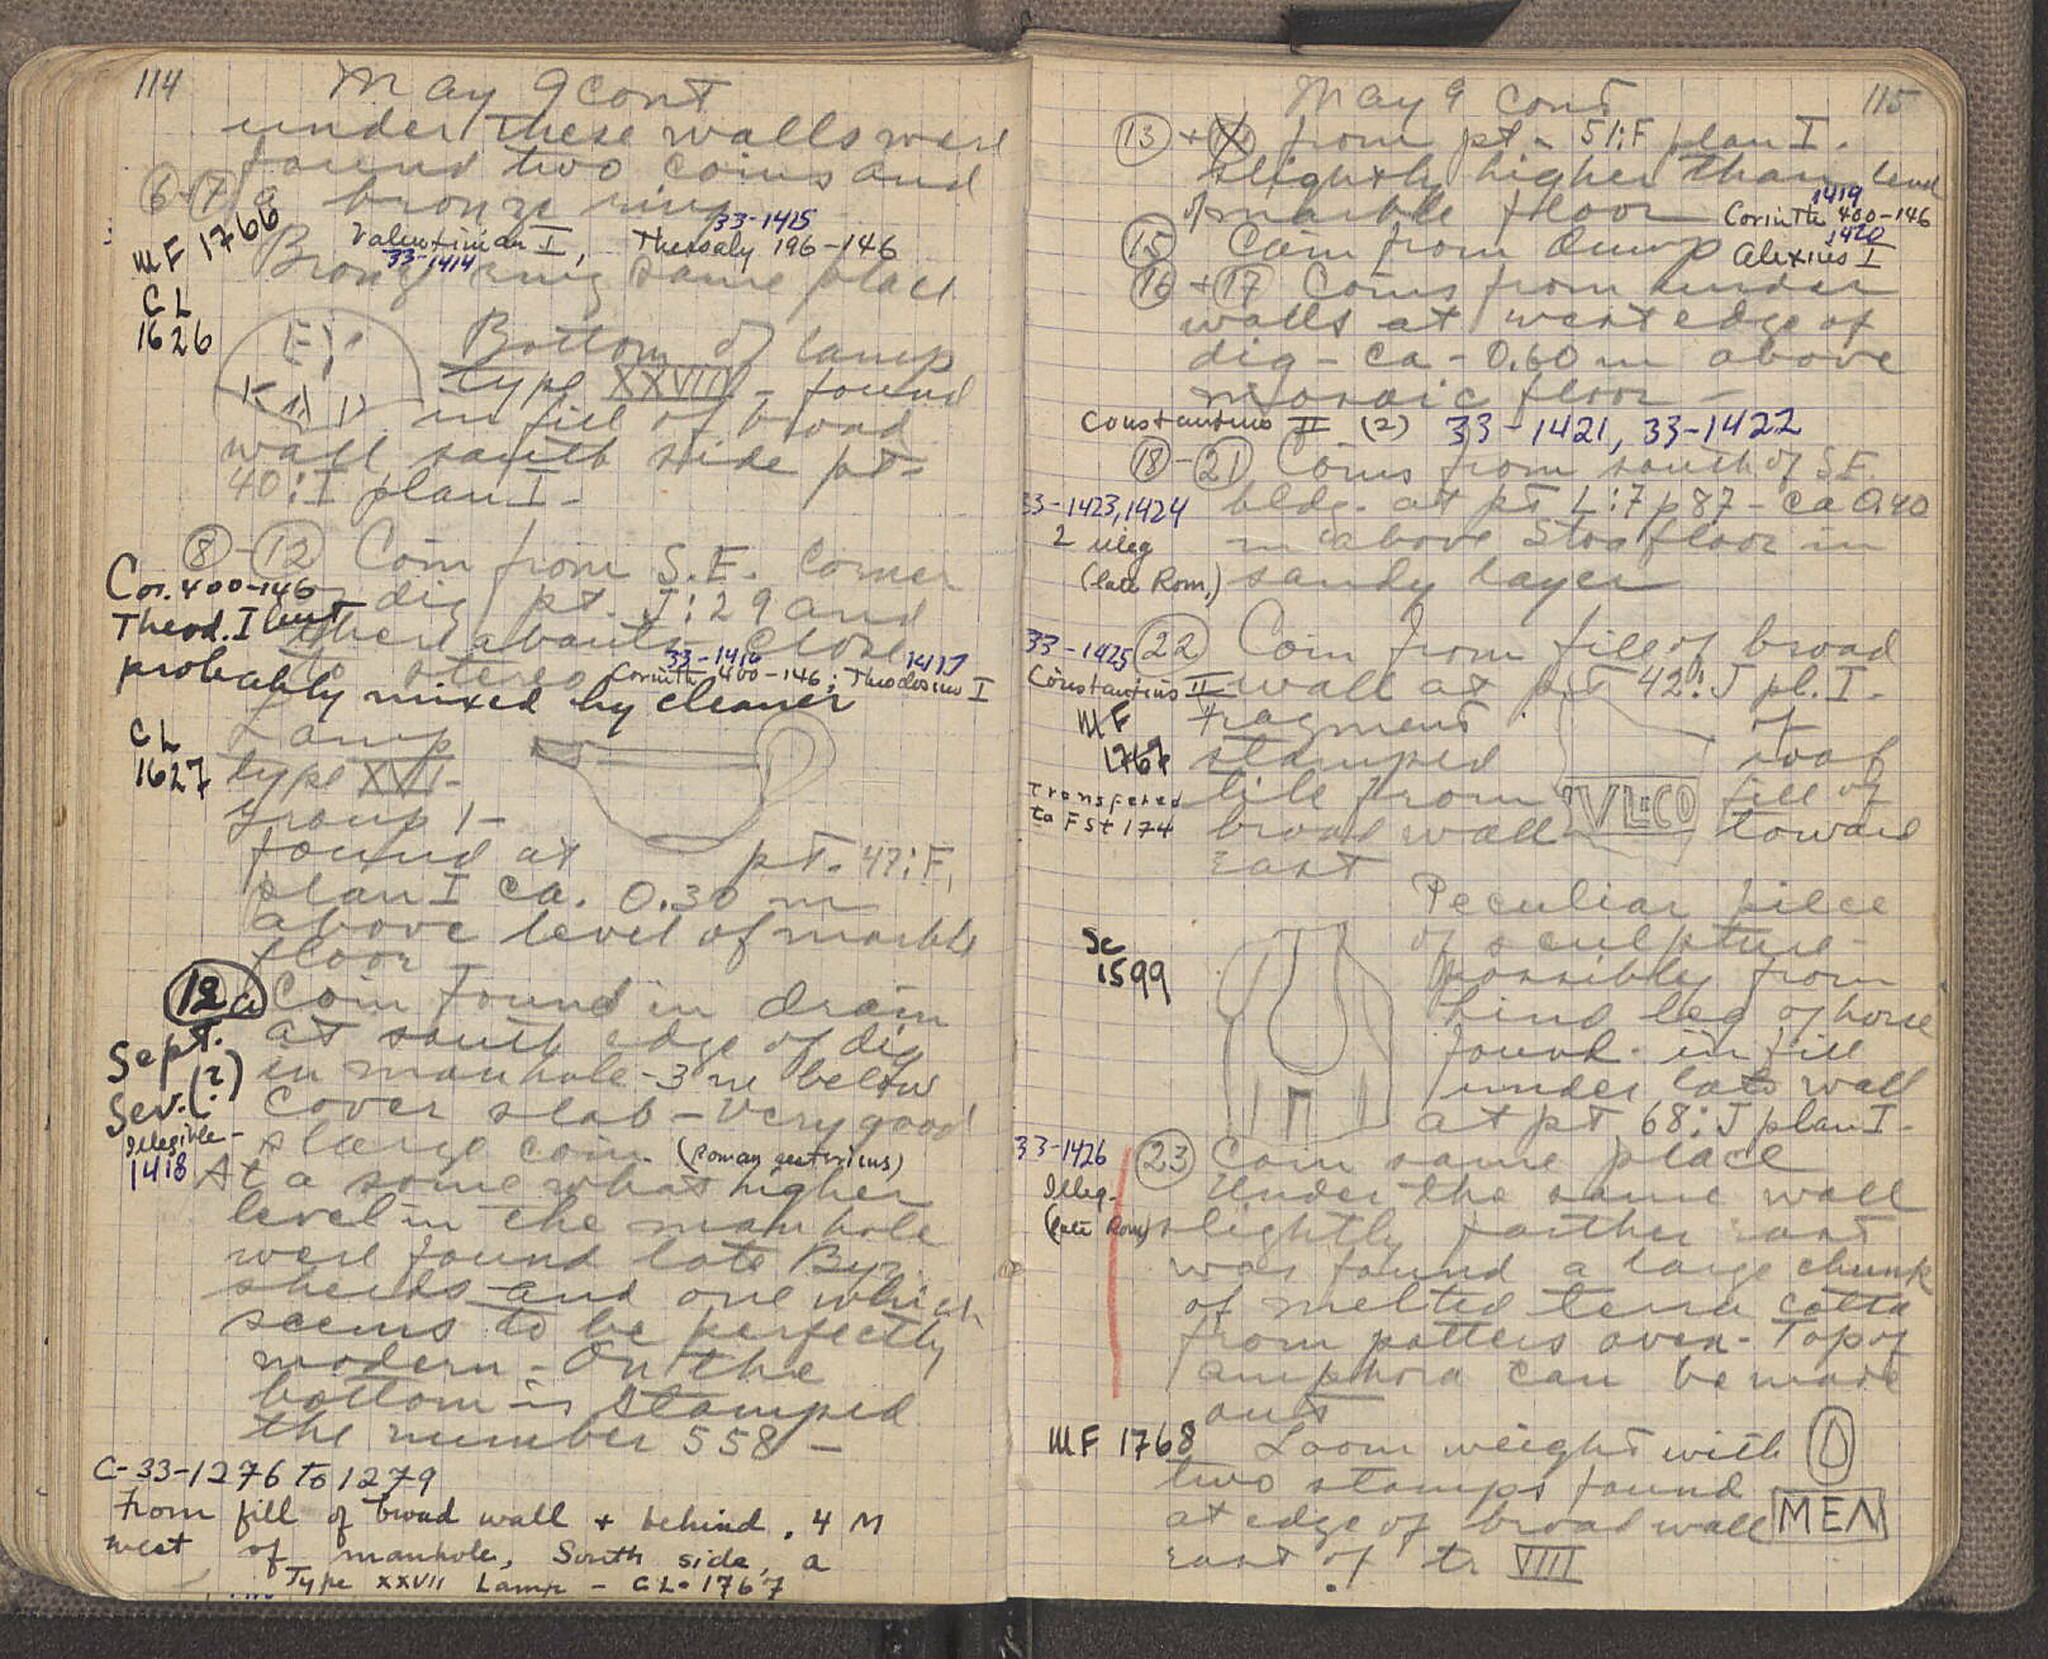 114
May 9 cont
under these walls were
found two coins and
6-7 a bronze ring
33-1415
MF 1766
Valentinian I, Thessaly 196-146
33-1414
Bronze ring same place
CL
1626
Bottom of lamp
type XXVIII - found
in fill of broad
wall south side pt-
40:I plan I-
8-12 Coin from S.E. corner
Cor. 400-146
dig pt. J:29 and
Theod. I
thereabouts close
33-1416 1417
to stereo Corinth 400-146; Theodosius I
probably mixed by cleaner
CL
1627
Lamp
type XVI-
group 1-
found at pt. 47:F,
plan I ca. 0.30 m
above level of marble
floor
12a Coin found in drain
Sept.
Sev. (?)
at south edge of dig
in manhole - 3 m below
cover slab - very good
Illegible-
1418
large coin. (Roman sestertius)
At a somewhat higher
level in the manhole
were found late Byz.
sherds and one which
seems to be perfectly
modern - On the
bottom is stamped
the number 558 -
C-33-1276 to 1279
From fill of broad wall + behind, 4 M
west of manhole, South side, a
Type XXVII Lamp - CL-1767
May 9 cont
115
13 + from pt - 51:F plan I.
slightly higher than level
1419
of marble floor Corinth 400-146
1420
15 Coin from dump Alexius I
16 + 17 Coins from under
walls at west edge of
dig - ca - 0.60 m above
mosaic floor -
Constantius II (2) 33-1421, 33-1422
18-21 Coins from south of S.E.
33-1423, 1424
bldg. at pt L:7 p87 - ca 0.40
2 illeg
(late Rom.)
m above Stoa floor in
sandy layer
33-1425 22 Coin from fill of broad
Constantius II wall at pt 42:J pl. I-
MF
1767
Transfered
to FSt 174
Fragment of
stamped roof
tile from fill of
VL:CO
broad wall toward
east
Sc
1599
Peculiar piece
of sculpture-
possibly from
hind leg of horse
found in fill
under late wall
at pt 68:J plan I-
33-1426
Illeg-
(late Rom)
23 Coin same place
Under the same wall
slightly farther east
was found a large chunk
of melted terra cotta
from potters oven - Top of
amphora can be made
out
MF 1768 Loom weight with
two stamps found
at edge of broad wall
MEN
east of tr VIII